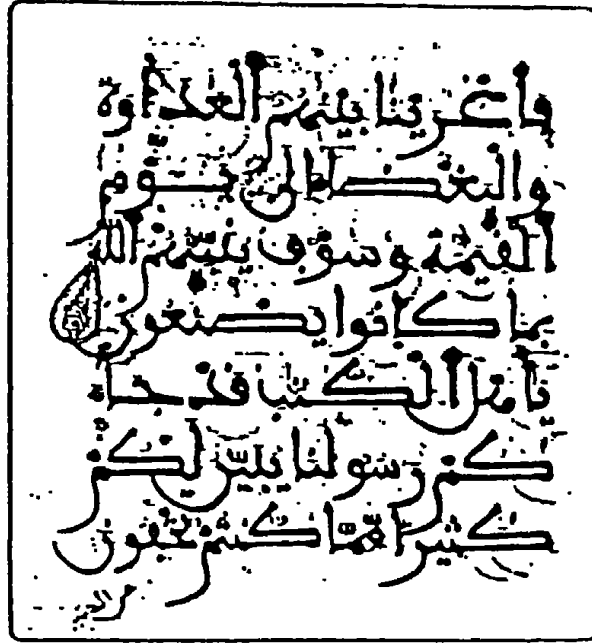 فأغرينا بينهم العداوة
والبغضاء إلى يوم
القيمة وسوف ينبئهم الله
بما كانوا يصنعون
يأهل الكتب قد جا
كم رسولنا يبين لكم
كثيرا مما كنتم تخفون